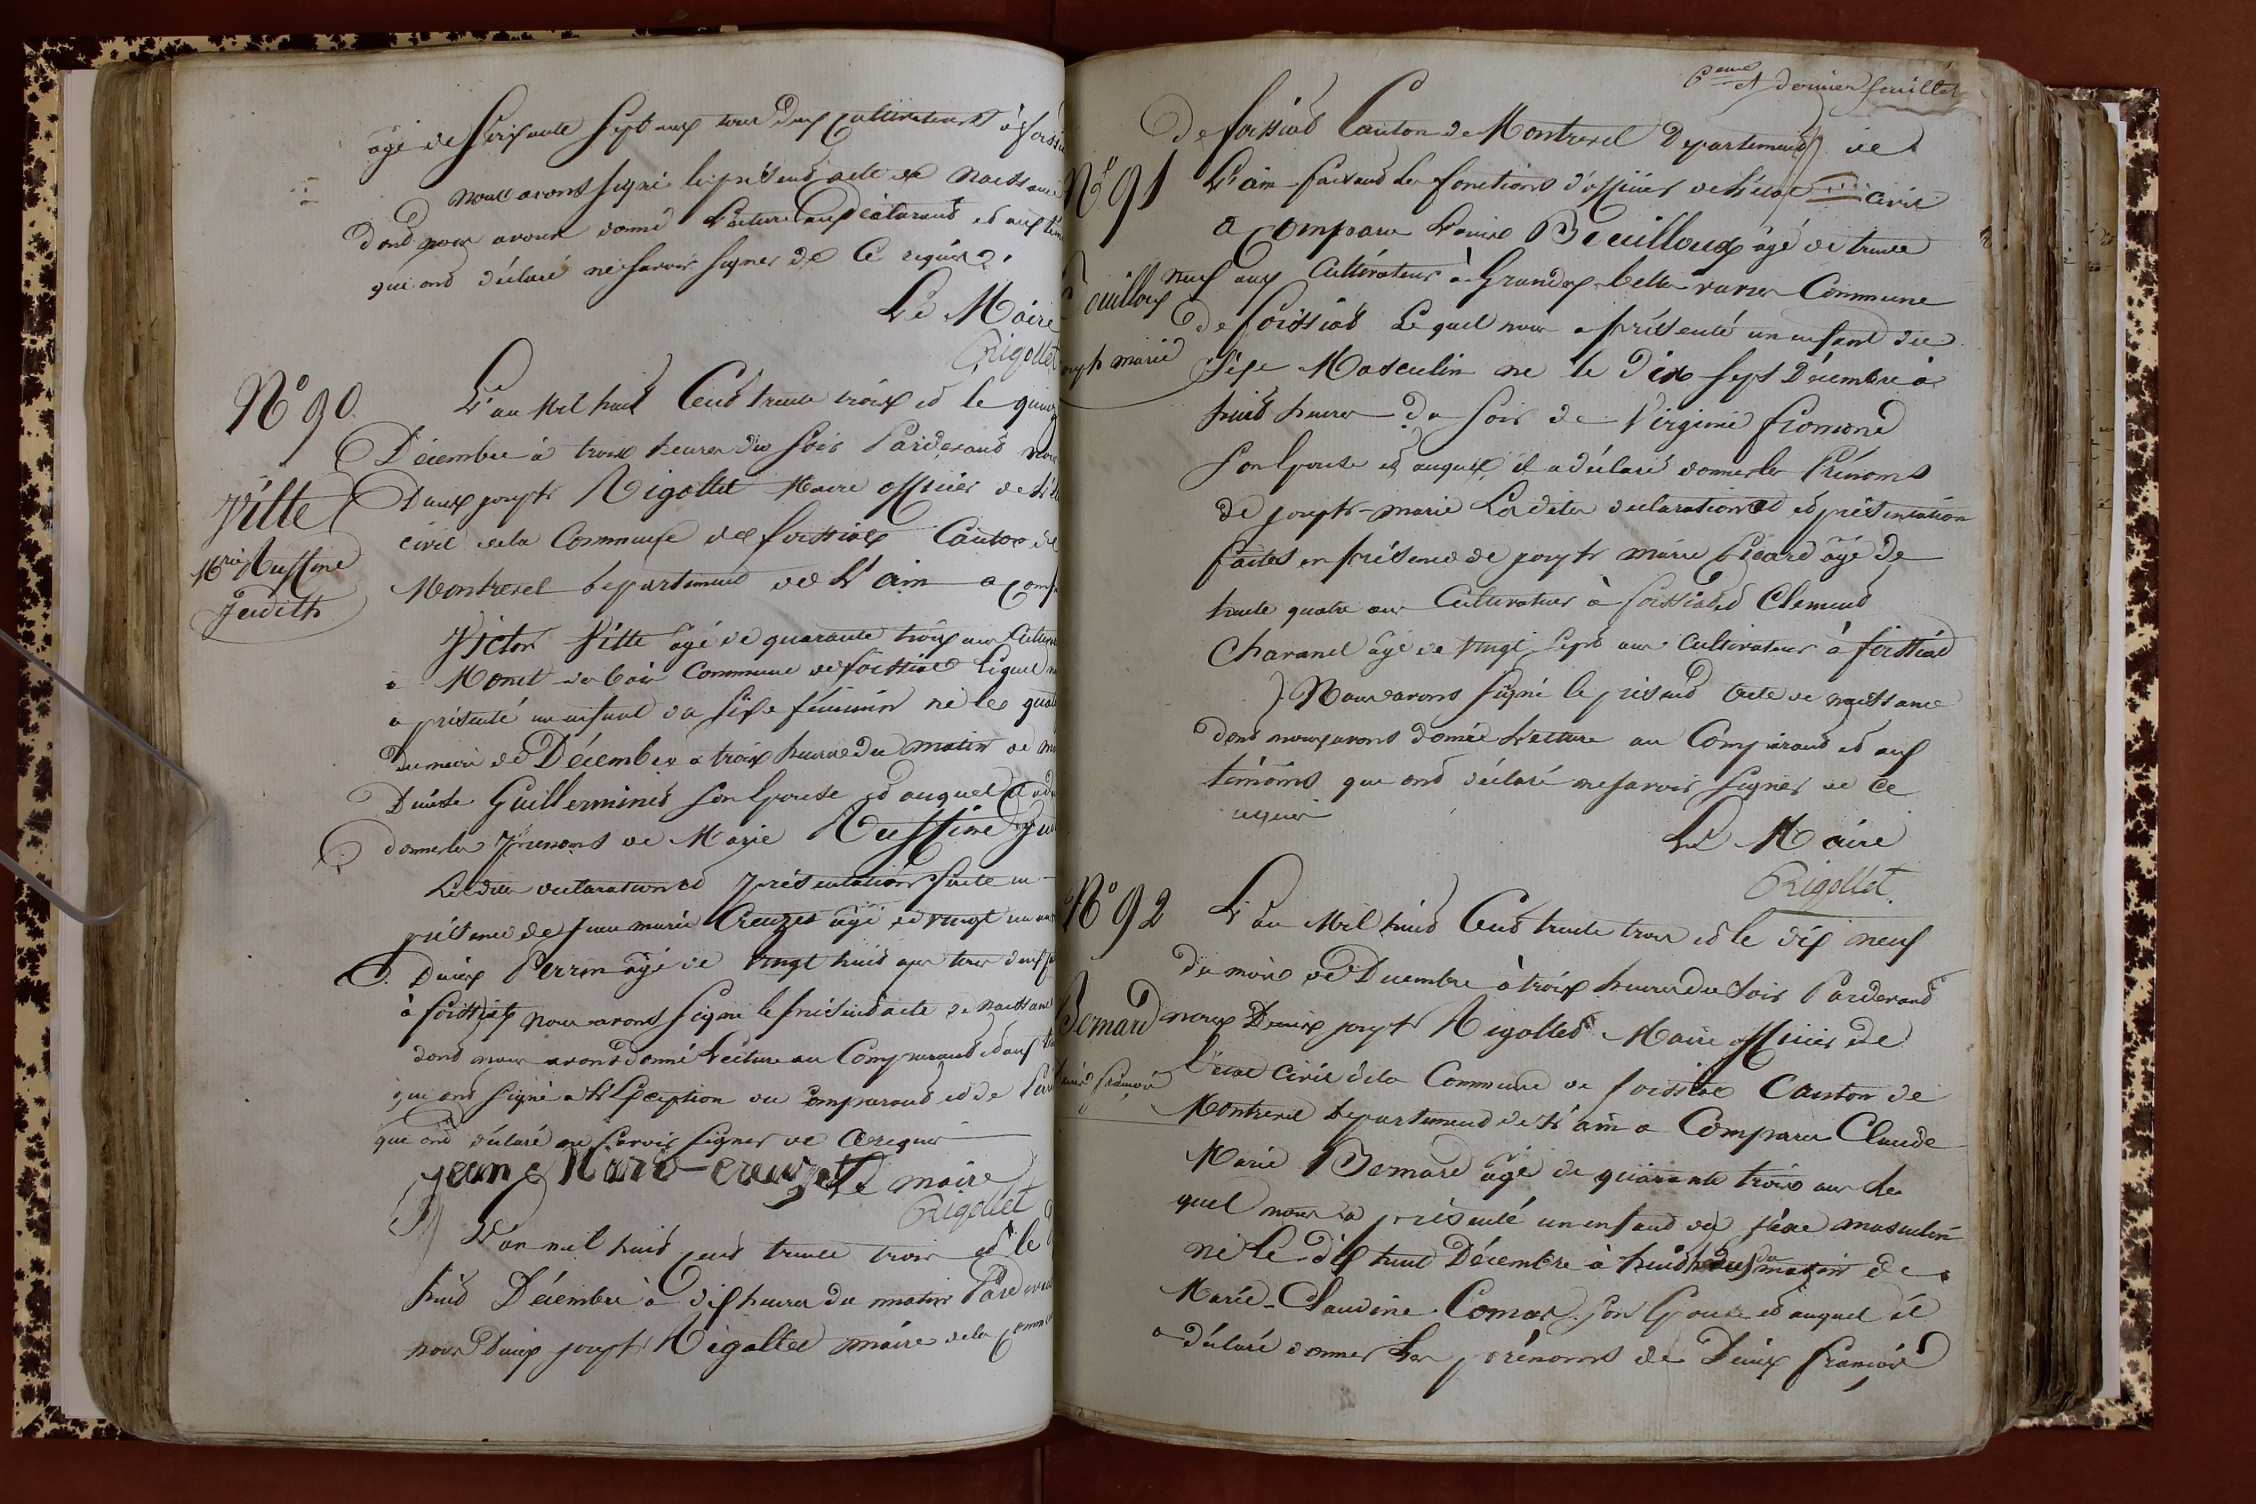 âgé de soixante sept ans tous deux cultivateurs à
nous avons signé le présend acte de naissance
dond nous avons donné Lecture aux déclarand et aux
qui ond déclaré ne savoir signer de ce requis
Le Maire
Rigollet
N° 90.
Vitte
Mrie Ruffine
Judith
L'an Mil huid Cend trente troix et le
Décembre à troix heures du soir Pardevand
Denix joseph Rigollet Maire officier de
civil de la Commune de foissiat Canton de
Montrevel departement de L'ain a
Victor Vitte âgé de quarante troix ans
à Monet de bair Commune de foissiat Lequel
a présenté un enfant du sexe féminin né le
du moix de Décembre a troix heures du matin de
Deniste Guillerminet son Epouse et auquel il
donner les Prenoms de Marie Ruffine
Lesdites declaration et présentation faite en
présence de jean marie Creuzet âgé de vingt un ans
Denix Perrin âgé de vingt huid ans tous deux
à foissiat nous avons signé le présend acte de naissance
dond nous avons donné Lecture au Comparand et aux
qui ond signé a L'Exception du Comparand et de
qui ond déclaré ne savoir signer de ce requis
jean Marie creuzet Le maire
Rigollet
L'an mil huid cend trente troix et le
huid Décembre à dix heures du matin Pardevand
nous Denix joseph Rigollet maire de la
6eme et dernier feuillet
N° 91
ouilloux
marie
De foissiat Canton de Montrevel Departement de
L'ain faisand les fonctions d'officier de L'état civil
a Comparu Bouilloux âgé de trente
neuf ans Cultivateur à Commune
de foissiat Le quel nous a présenté un enfant du
sexe Masculin né le Dix sept Décembre à
huid heures du soir de Virginie fromond
son Epouse et auquel il a déclaré donner les Prénoms
de joseph-marie Lesdites declaration et présentation
faites en présence de joseph marie âgé de
trente quatre ans Cultivateur à foissiat et Clemend
Charanel âgé de vingt sept ans cultivateur à foissiat
Nous avons signé le présend acte de naissance
dond nous avons donné Lecture au Comparand et aux
témoins qui ond déclaré ne savoir signer de ce
requis
Le Maire
Rigollet
N° 92
Bernard
françoix
L'an Mil huid Cend trente troix et le dix neuf
du moix de Decembre à troix heures du soir Pardevand
nous Denix joseph Rigollet Maire officier de
L'état civil de la Commune de foissiat Canton de
Montrevel departement de L'ain a Comparu Claude
Marie Bernard âgé de quarante troix ans Le
quel nous a présenté un enfand du sexe masculin
né le dix huit Décembre à huid heures du matin de
Marie-Claudine Comas son Epouse et auquel il
a déclaré donner Les prénoms de Denix françoix